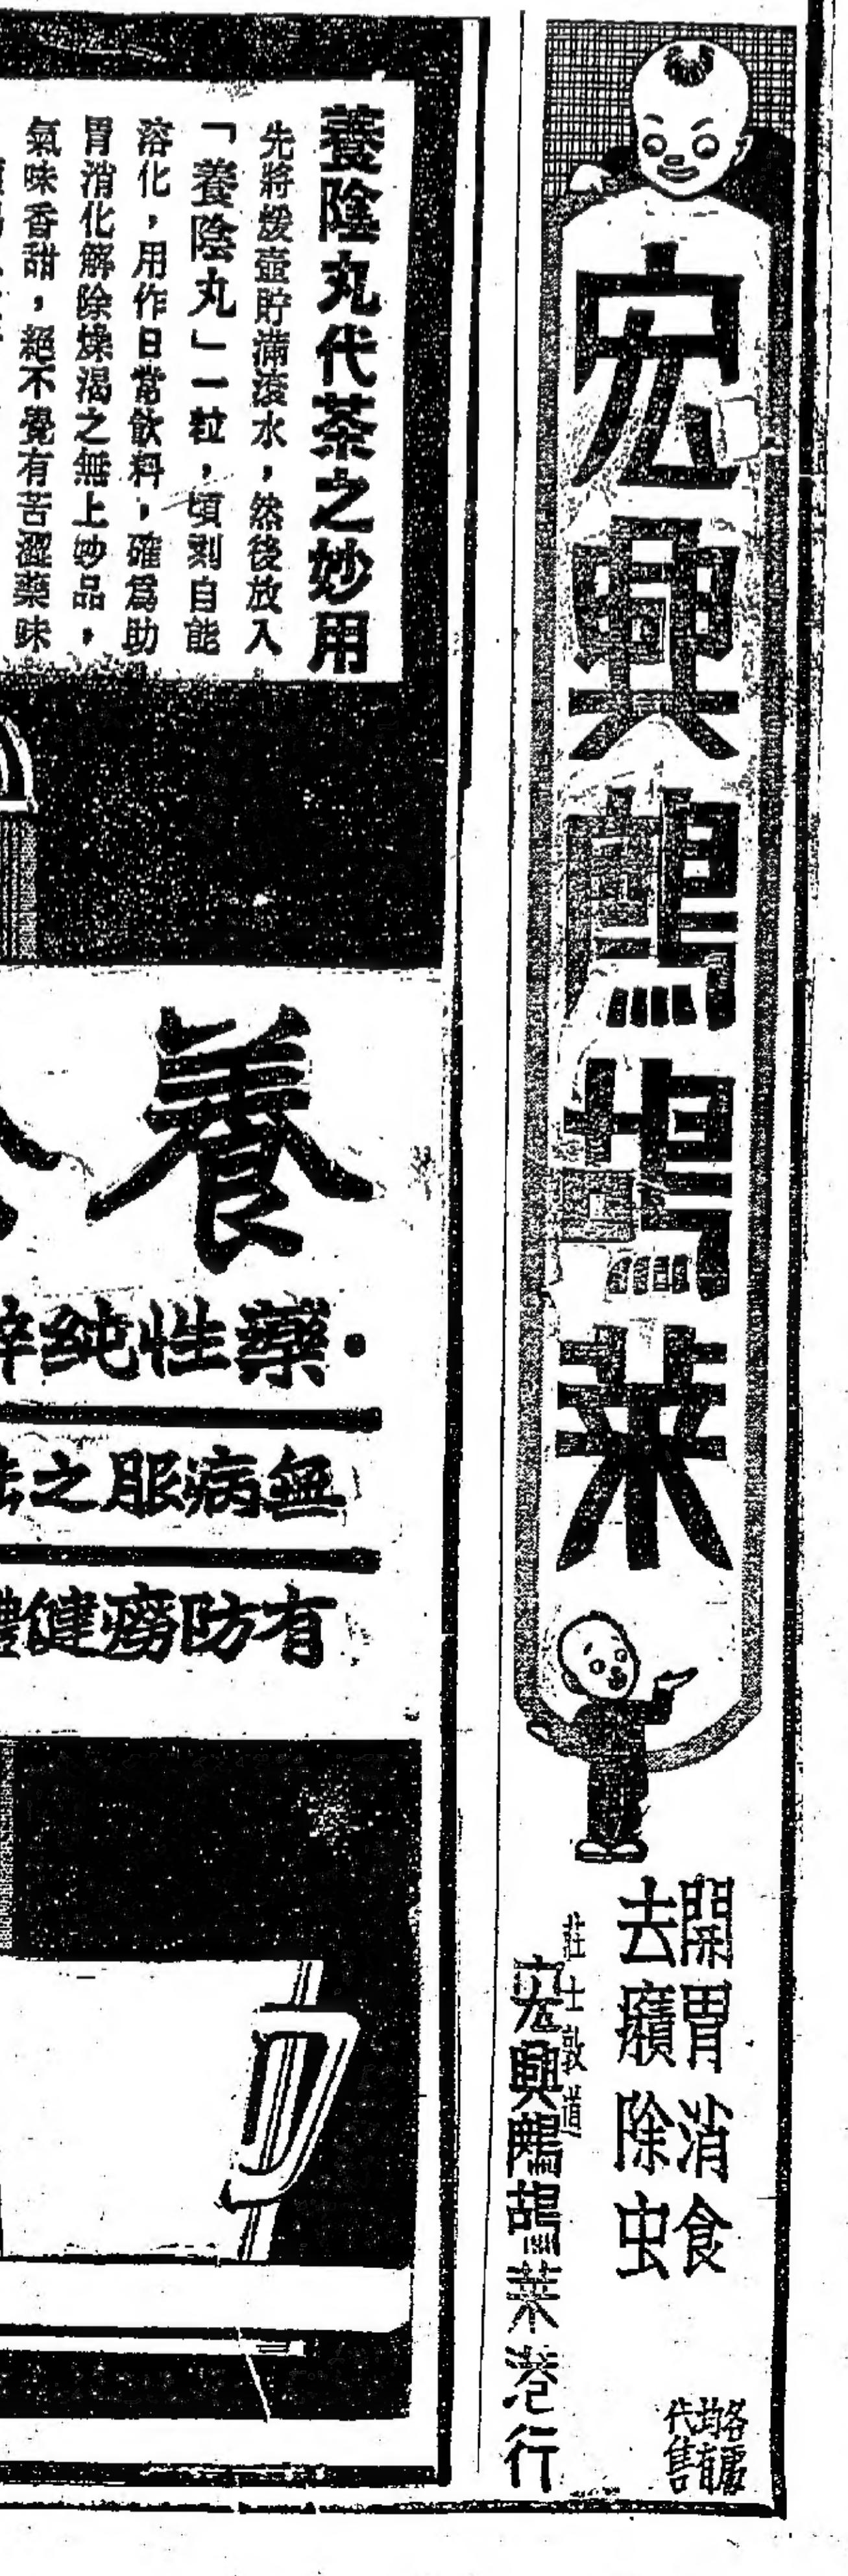 宏興鷓鴣菜
開胃消食
去癪除虫
莊士敦道
宏興鷓鴣菜港行
各處
均有
代售
養陰丸代茶之妙用
先將煖壺貯滿滾水，然後放入
「養陰丸」一粒，頃刻自能
溶化，用作日常飲料，確爲助
胃消化解除燥渴之無上妙品，
氣味香甜，絕不覺有苦澀藥味
養
·藥性純
無病服之
有防癆健體